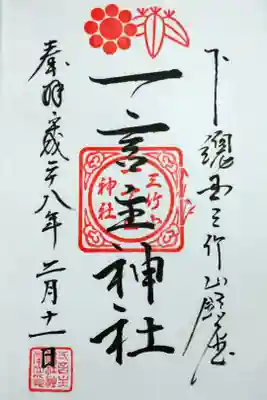 下總国三竹山鎮座
一言主神社
三竹山
神社
奉拝 平成二十八年 二月十一日